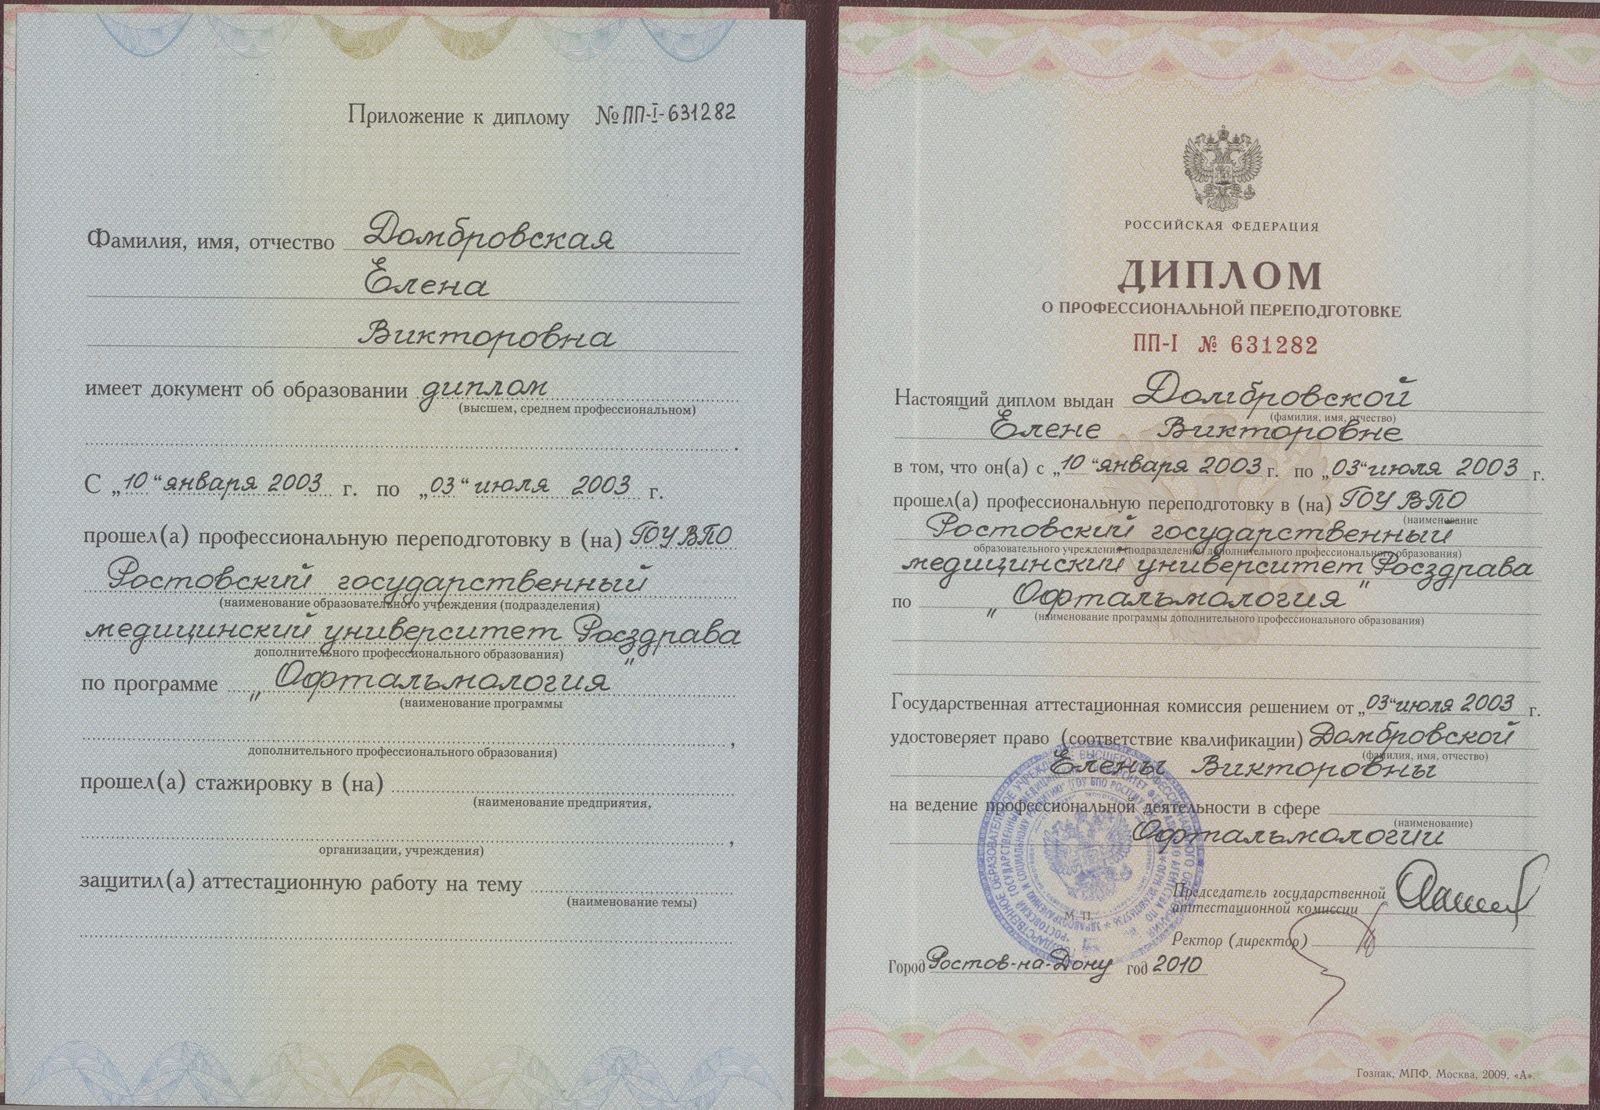 Приложение к диплому № ПП-I-631282
Фамилия, имя, отчество Домбровская
Елена
Викторовна
имеет документ об образовании диплом
(высшем, среднем профессиональном)
С „10“ января 2003 г. по „03“ июля 2003 г.
прошел(а) профессиональную переподготовку в (на) ГОУ ВПО
Ростовский государственный
(наименование образовательного учреждения (подразделения)
медицинский университет Росздрава
дополнительного профессионального образования)
по программе „Офтальмология"
(наименование программы
дополнительного профессионального образования)
прошел(а) стажировку в (на)
(наименование предприятия,
организации, учреждения)
защитил(а) аттестационную работу на тему
(наименование темы)
РОССИЙСКАЯ ФЕДЕРАЦИЯ
ДИПЛОМ
О ПРОФЕССИОНАЛЬНОЙ ПЕРЕПОДГОТОВКЕ
ПП-I № 631282
Настоящий диплом выдан Домбровской
(фамилия, имя, отчество)
Елене Викторовне
в том, что он(а) с „10“ января 2003 г. по „03“ июля 2003 г.
прошел(а) профессиональную переподготовку в (на) ГОУ ВПО
(наименование
Ростовский государственный
образовательного учреждения (подразделения) дополнительного профессионального образования)
медицинский университет Росздрава
по „Офтальмология"
(наименование программы дополнительного профессионального образования)
Государственная аттестационная комиссия решением от „03“ июля 2003 г.
удостоверяет право (соответствие квалификации) Домбровской
(фамилия, имя, отчество)
Елены Викторовны
на ведение профессиональной деятельности в сфере
(наименование)
Офтальмологии
Председатель государственной
аттестационной комиссии
М. П.
Ректор (директор)
Город Ростов-на-Дону год 2010
Гознак, МПФ, Москва, 2009, «А».